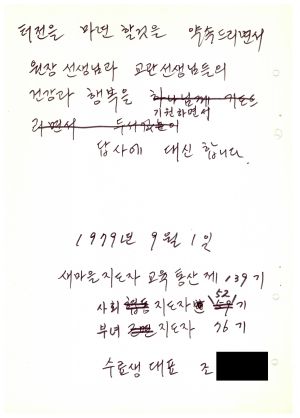 터전을 마련 할것을 약속드리면서
원장 선생님과 교관선생님들의
건강과 행복을 하나님께 기도드
기원하면서
리면서 두서없는
답사에 대신 합니다.
1979년 9월 1일
새마을 지도자 교육 통산 제 139기
52
사회 지도자반 기
부녀 지도자 36기
수료생 대표 조